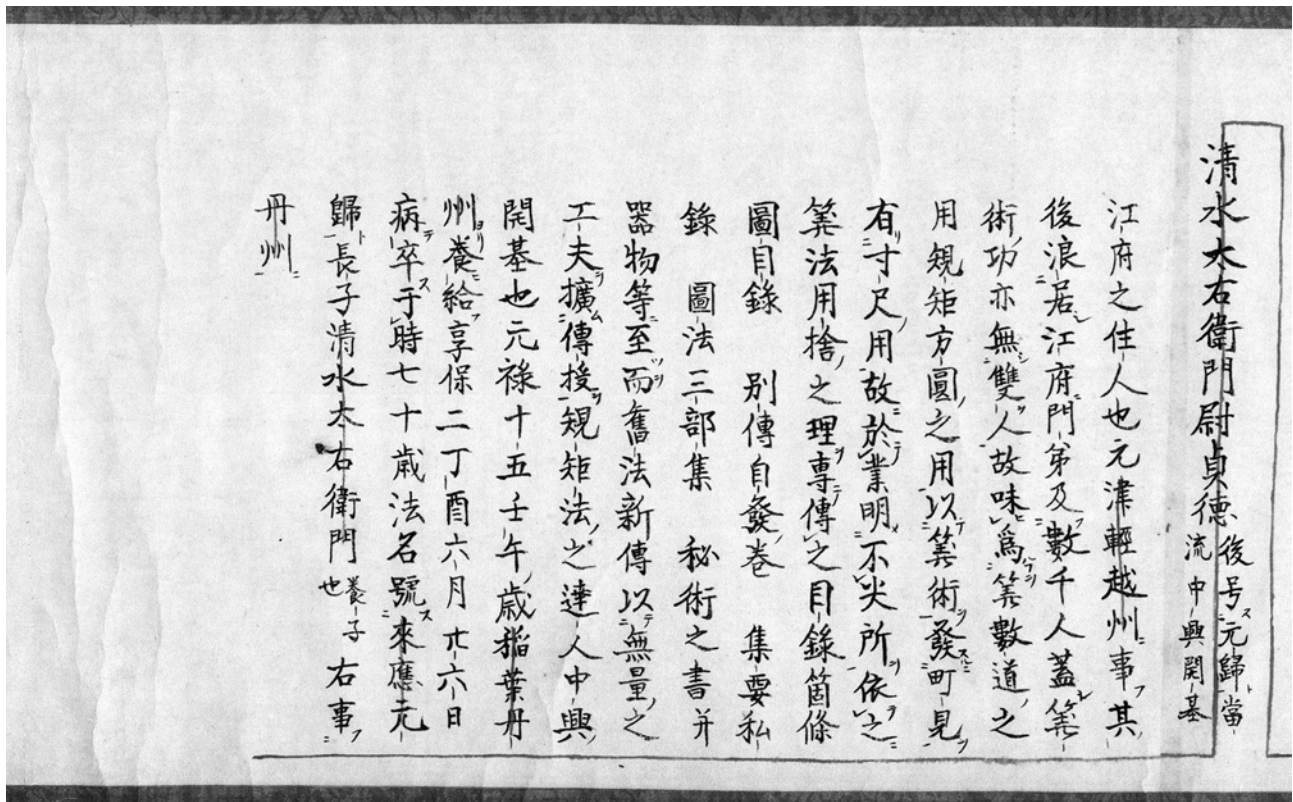 清水太右衛門尉貞徳 後号元歸當
流中興開基
江府之住人也元津輕越州事其
後浪居江府門弟及數千人蓋筭
術功亦無雙人故味爲筭數道之
用規矩方圓之用以筭術發町見
有寸尺用故於業明不尖所依之
筭法用捨之理專傳之目錄箇條
圖目錄 別傳自發卷 集要私
錄 圖法三部集 秘術之書并
器物等至而舊法新傳以無量之
工夫擴傳授規矩法之達人中興
開基也元祿十五壬午歳稲葉丹
州養給享保二丁酉六月廿六日
病卒于時七十歳法名號來應元
歸長子清水太右衛門養子也 右事
丹州